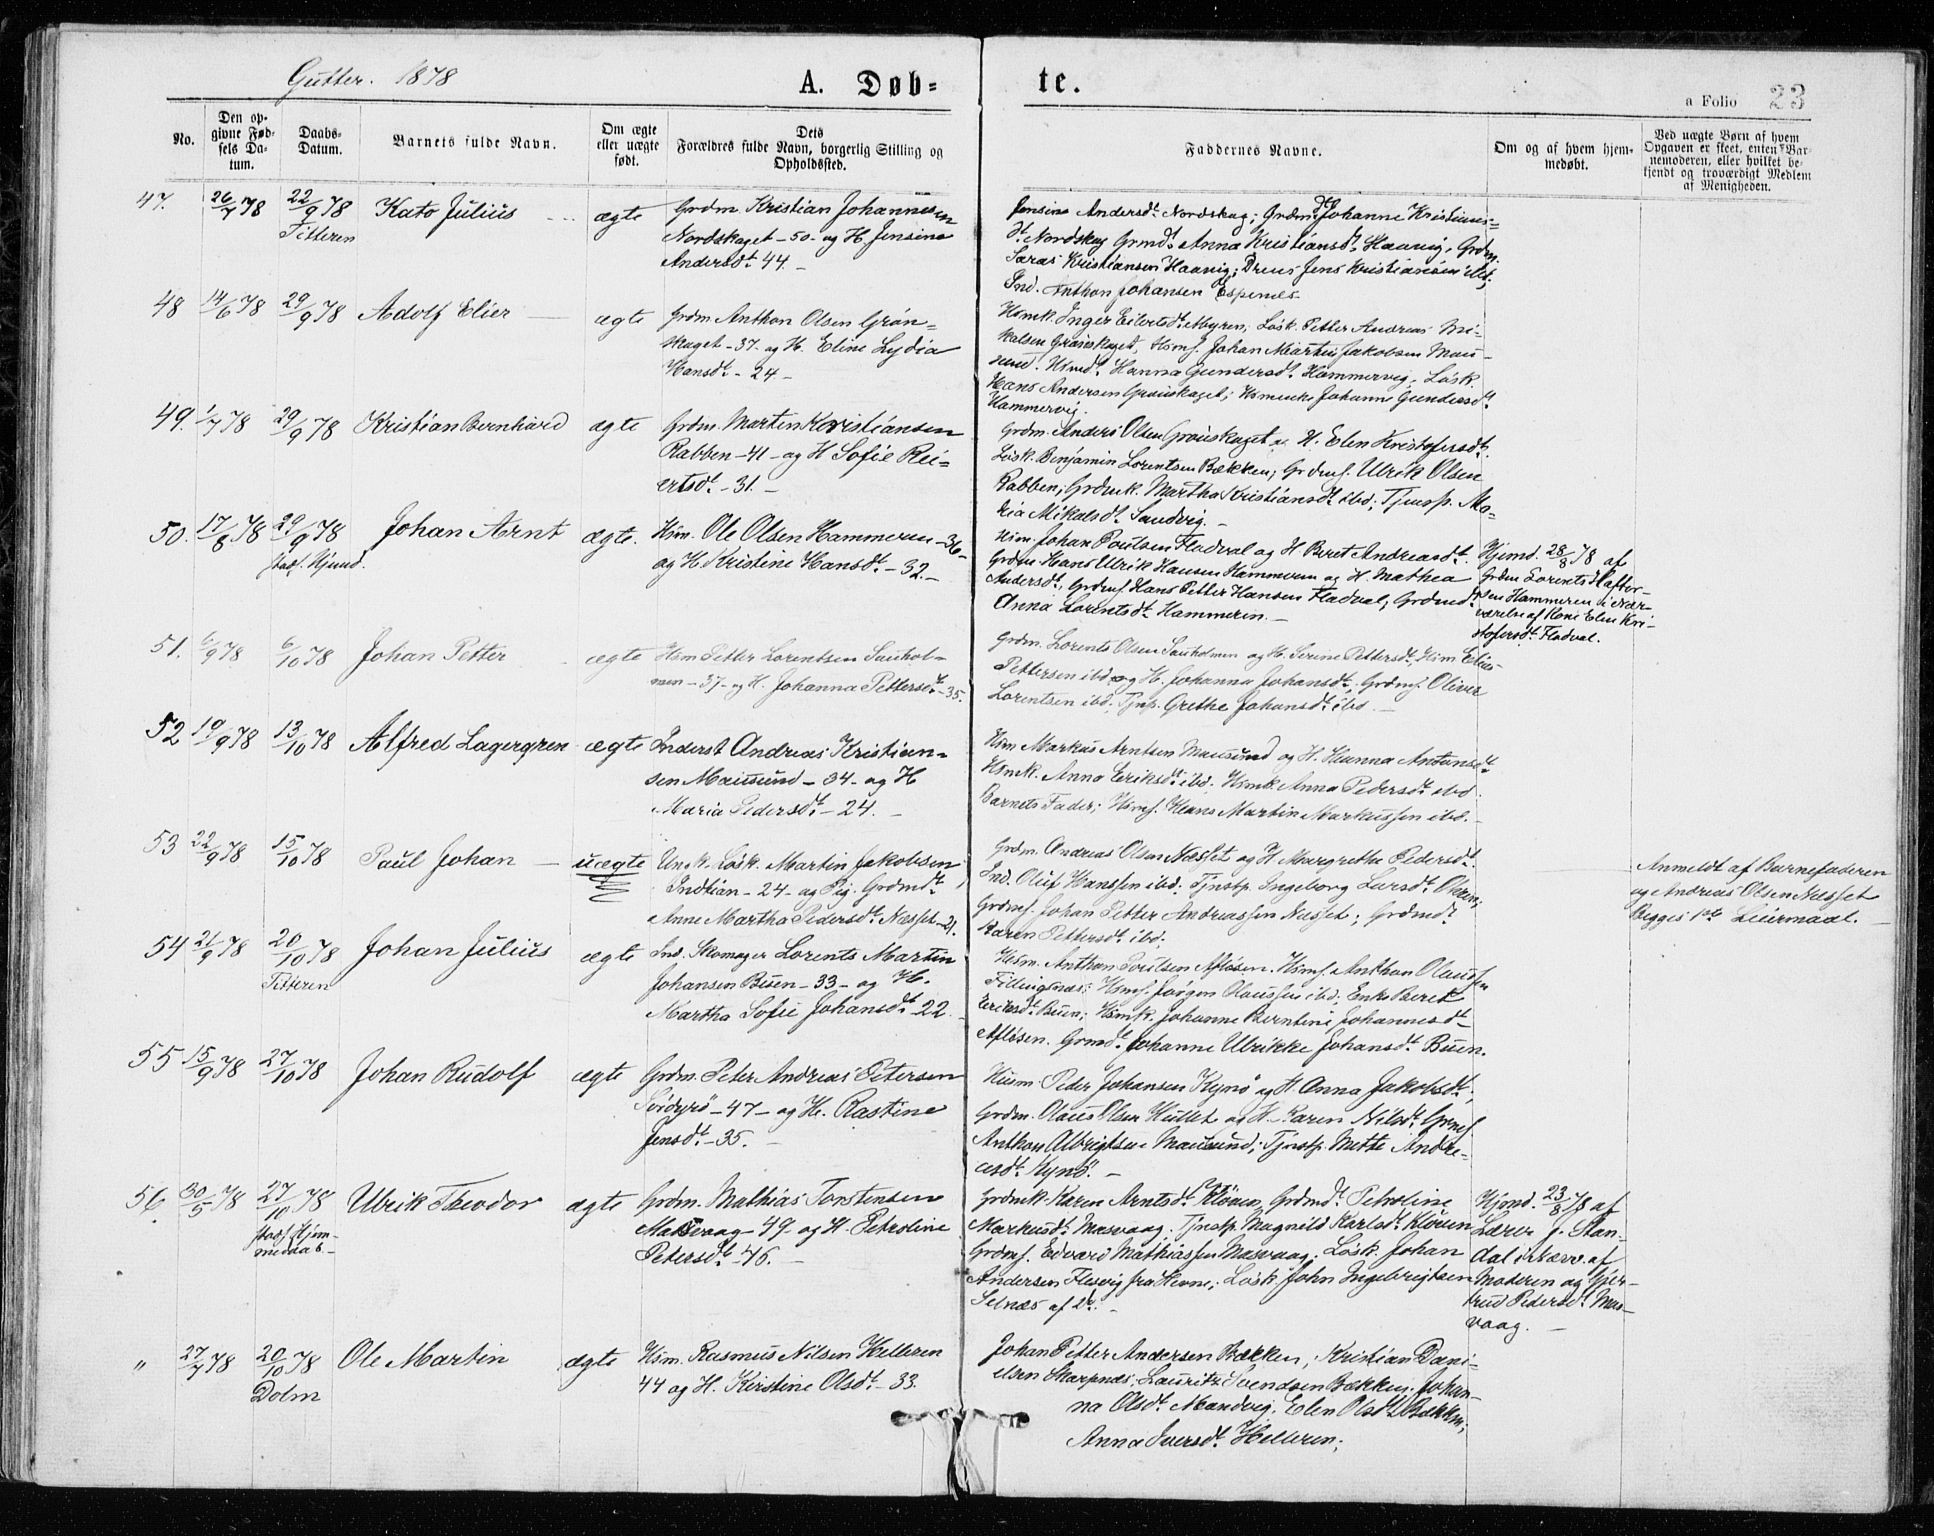 Gutter. 1878
A. Døb=
te.
a Folio 23
No.
Den op-
givne Fød-
sels Da-
tum.
Daabs-
Datum.
Barnets fulde Navn.
Om ægte
eller uægte
født.
Dets
Forældres fulde Navn, borgerlig Stilling og
Opholdssted.
Faddernes Navne.
Om og af hvem hjem-
medøbt.
Ved uægte Børn af hvem
Opgaven er skeet, enten Bar-
nemoderen, eller hvilket be-
kjendt og troværdigt Medlem
af Menigheden.
47. 26/7 78 22/9 78 Kato Julius ægte Grdm. Kristian Johannesen
Titteren
Nordskaget - 50 - og H. Jensine
Andersdt. 44. -
Jensine Andersdt. Nordskag; Grdm. Johanne Kristians=
dt. Nordskag Grmdt. Anna Kristiansdt. Haavig, Grdm.
Saras Kristiansen Haavig; Dreus Jens Kristiansen ibd;
Ind. Anthon Johansen Espenes
48 14/6 78 29/9 78 Adolf Elier ægte Grdm Anthon Olsen Grøn=
skaget - 37 - og H. Eline Lydia
Hansdt. - 24 -
Hsmk. Inger Eilertsdt. Myren; Løsk. Petter Andreas Mi-
kalsen Grønskaget, Hsms. Johan Martin Jakobsen Mau-
sund. Hsmdt. Hanna Gundersdt. Hammervig, Løsk.
Hans Andersen Grønskaget; Hsmenke Johanne Gundersdt.
Hammervig.
49. 1/7 78 29/9 78 Kristian Bernhard ægte Grdm. Marten Kristiansen
Rabben - 41 - og H Sofie Rei=
ertsdt. - 31. -
Grdm. Anders Olsen Grønskaget og H. Elen Kristofersdt.
Løsk. Benjamin Lorentsen Bækken; Grdms. Ulrik Olsen
Rabben; Grdmk. Martha Kristiansdt ibd; Tjnstp. Ma-
ria Mikalsdt. Sandvig. -
50. 17/8 78 29/9 78 Johan Arnt ægte. Hsm. Ole Olsen Hammeren - 36 -
stadf. Hjemd.
og H. Kristine Hansdt. - 32. -
Hsm. Johan Poulsen Fladval og H Beret Andreasdt.
Grdm Hans Ulrik Hansen Hammeren og H. Mathea
Andersdt., Grdms. Hans Petter Hansen Fladval, Grdmdt.
Anna Lorentsdt. Hammeren. -
Hjemd. 28/8 78 af
Grdm Lorents
sen Hammeren i Nær-
værelse af Kone Elen Kri-
stofersdt. Fladval.
51. 6/9 78 6/10 78 Johan Petter ægte Hsm Petter Lorentsen Sauhol-
men - 37 - og H. Johanna Pettersdt. - 35.
Grdm. Lorents Olsen Sauholmen og H. Serine Pettersdt., Hsm Elias
Pettersen ibd. og H. Johanna Johansdt; Grdms. Oliver
Lorentsen ibd; Tjnp. Grethe Johansdt. ibd. -
52 19/9 78 13/10 78 Alfred Lagergren ægte Inderst Andreas Kristian-
sen Mausund - 34 - og H
Maria Pedersdt. - 24. -
Hsm Markus Arntsen Mausund og H. Hanna Antonsdt.
Hsmk. Anna Eriksdt. ibd. Hsmk. Anna Pedersdt. ibd.
Barnets Fader; Hsms. Hans Martin Markussen ibd.
53 22/9 78 15/10 78 Paul Johan uægte Løsk. Martin Jakobsen
Indtian - 24 - og Pig. Grdmdt.
Anne Martha Pedersdt. Næsset - 21.
Grdm. Andreas Olsen Næsset og H Margretha Pedersdt.
Ind. Oluf Hanssen ibd; Tjnstp. Ingeborg Larsdt.
Grdms. Johan Petter Andreassen Næsset; Grdmdt.
Karen Pettersdt. ibd.
Anmeldt af Barnefaderen
og Andreas Olsen Næsset
Begges 1ste Leiermaal.
54 21/9 78 20/10 78 Johan Julius ægte Ind. Skomager Lorents Martin
Titteren
Johansen Buen - 33 - og H.
Martha Sofie Johansdt. 22
Hsm. Anthon Poulsen Afløsen. Hsms. Anthon Olaussen
Fillingsnæs; Hsms. Jørgen Olaussen ibd; Enke Beret
Eriksdt. Buen; Hsmk. Johanne Berntine Johannesdt.
Afløsen. Grmdt. Johanne Ulrikke Johansdt. Buen.
55 15/9 78 27/10 78 Johan Rudolf ægte Grdm. Peter Andreas Petersen
Sørdyrø - 47 - og H. Rastine
Jensdt. - 35. -
Husm. Peder Johansen Kynø og H. Anna Jakobsdt,
Grdm. Olaus Olsen og H. Karen Nilsdt. Grms.
Anthon Albrigtsen Mausund; Tjnstp. Mette Andre-
asdt. Kynø. -
56 30/5 78 27/10 78 Ulrik Theodor ægte Grdm. Mathias Torstensen
stadf. Hjem-
medaab. -
Masvaag - 49 - og H. Petroline
Petersdt. - 46. -
Grdmk. Karen Arntsdt. Kløven, Grdmdt. Petroline
Markusdt. Masvaag. Tjnstp. Magnild Karlsdt. Kløven
Grdms. Edvard Mathiassen Masvaag. Løsk. Johan
Andersen Flesvig fra Hevne; Løsk. John Ingebrigtsen
Selnæs af Do. -
Hjemd. 23/8 78 af
Lærer J. Stan-
dal i nærv. af
Moderen og Gjer-
trud Pedersdt. Mas-
vaag. -
" 27/7 78 20/10 78 Ole Martin ægte Hsm. Rasmus Nilsen Helleren
Dolm
44 og H. Kirstine Olsdt. - 33.
Johan Petter Andersen Bækken; Kristian Dani-
elsen Skarpnæs; Lauritz Svendsen Bækken; Johan-
na Olsdt. Mandvig, Elen Olsdt. Bækken;
Anna Iversdt. Helleren;